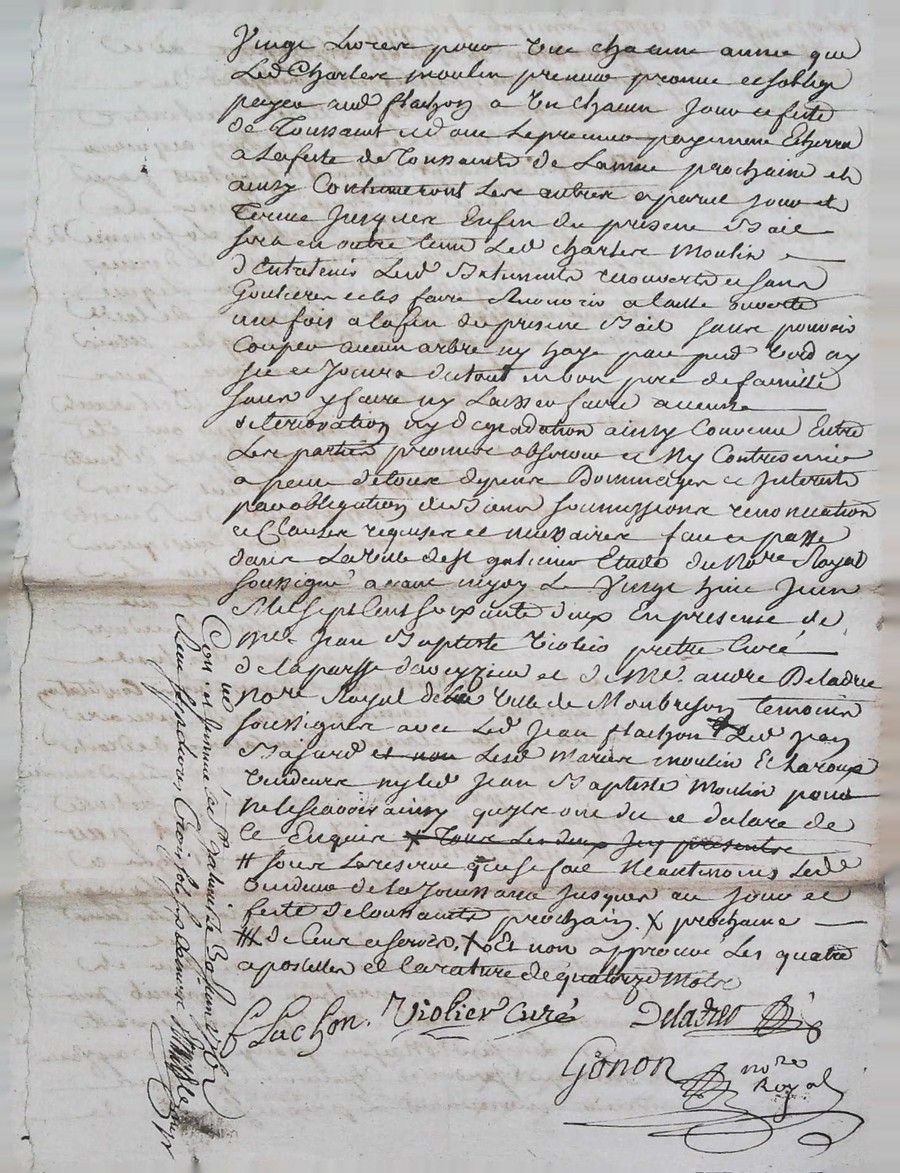 Vingt Livres pour Une chacune année que
Led Charles moulin preneur promet et s'oblige
payer aud flachon a Un chacun Jour et feste
de Toussaint et dont Le premier payement Echerra
a La feste de Toussaints de Lannée prochaine et
ainsy Continueront Les autres a pareil Jour et
Terme Jusques Enfin du présent Bail
sera en outre tenu Led charles Moulin
d'Entretenir Lesd Batiments recouverts et sans
Goutieres et les faire Recouvrir a taille ouverte
une fois a la fin du présent Bail sans pouvoir
Couper aucun arbre ny haye par pied Verd ny
sec et Jouira du tout en bon pere de famille
sans y faire ny Laisser faire aucune
déterioration ny dégradation ainsy Convenu Entre
Les parties promis observer et Ny Contrevenir
a peine de tous depens Dommages et Interests
par obligation de Biens soumissions renonciation
et Clauses requises et necessaires fait et passé
dans La Ville de St galmier Etude du Nore Royal
soussigné avant midy Le Vingt huit Juin
Mil sept Cent soixante deux En presence de
Mre Jean Baptiste Violier prêtre Curé
de la parsse daveyzieu et de Me. andre Deladret
nore Royal de la Ville de Montbrison temoins
soussignes avec Led Jean flachon # Led jean
Bajard et non Lesd Maries moulin Et Laroux
Vendeurs ny led Jean Baptiste Moulin pour
ne le scavoir ainsy quils ont dit et déclaré de
Ce Enquis X Tous Les deux Icy présents
# sous La reserve que se fait Neantmoins Led
Vendeur de la Jouissance Jusques au Jour et
feste de toussaints prochain. X prochaine
# de Ceux et servis, X Et non approuvé Les quatre
apostilles et La rature de quatorze mots
flachon. Violier Curé Deladret
Gonon nore
Royal
Conné et Insinué à St Galmier Le
Reçu